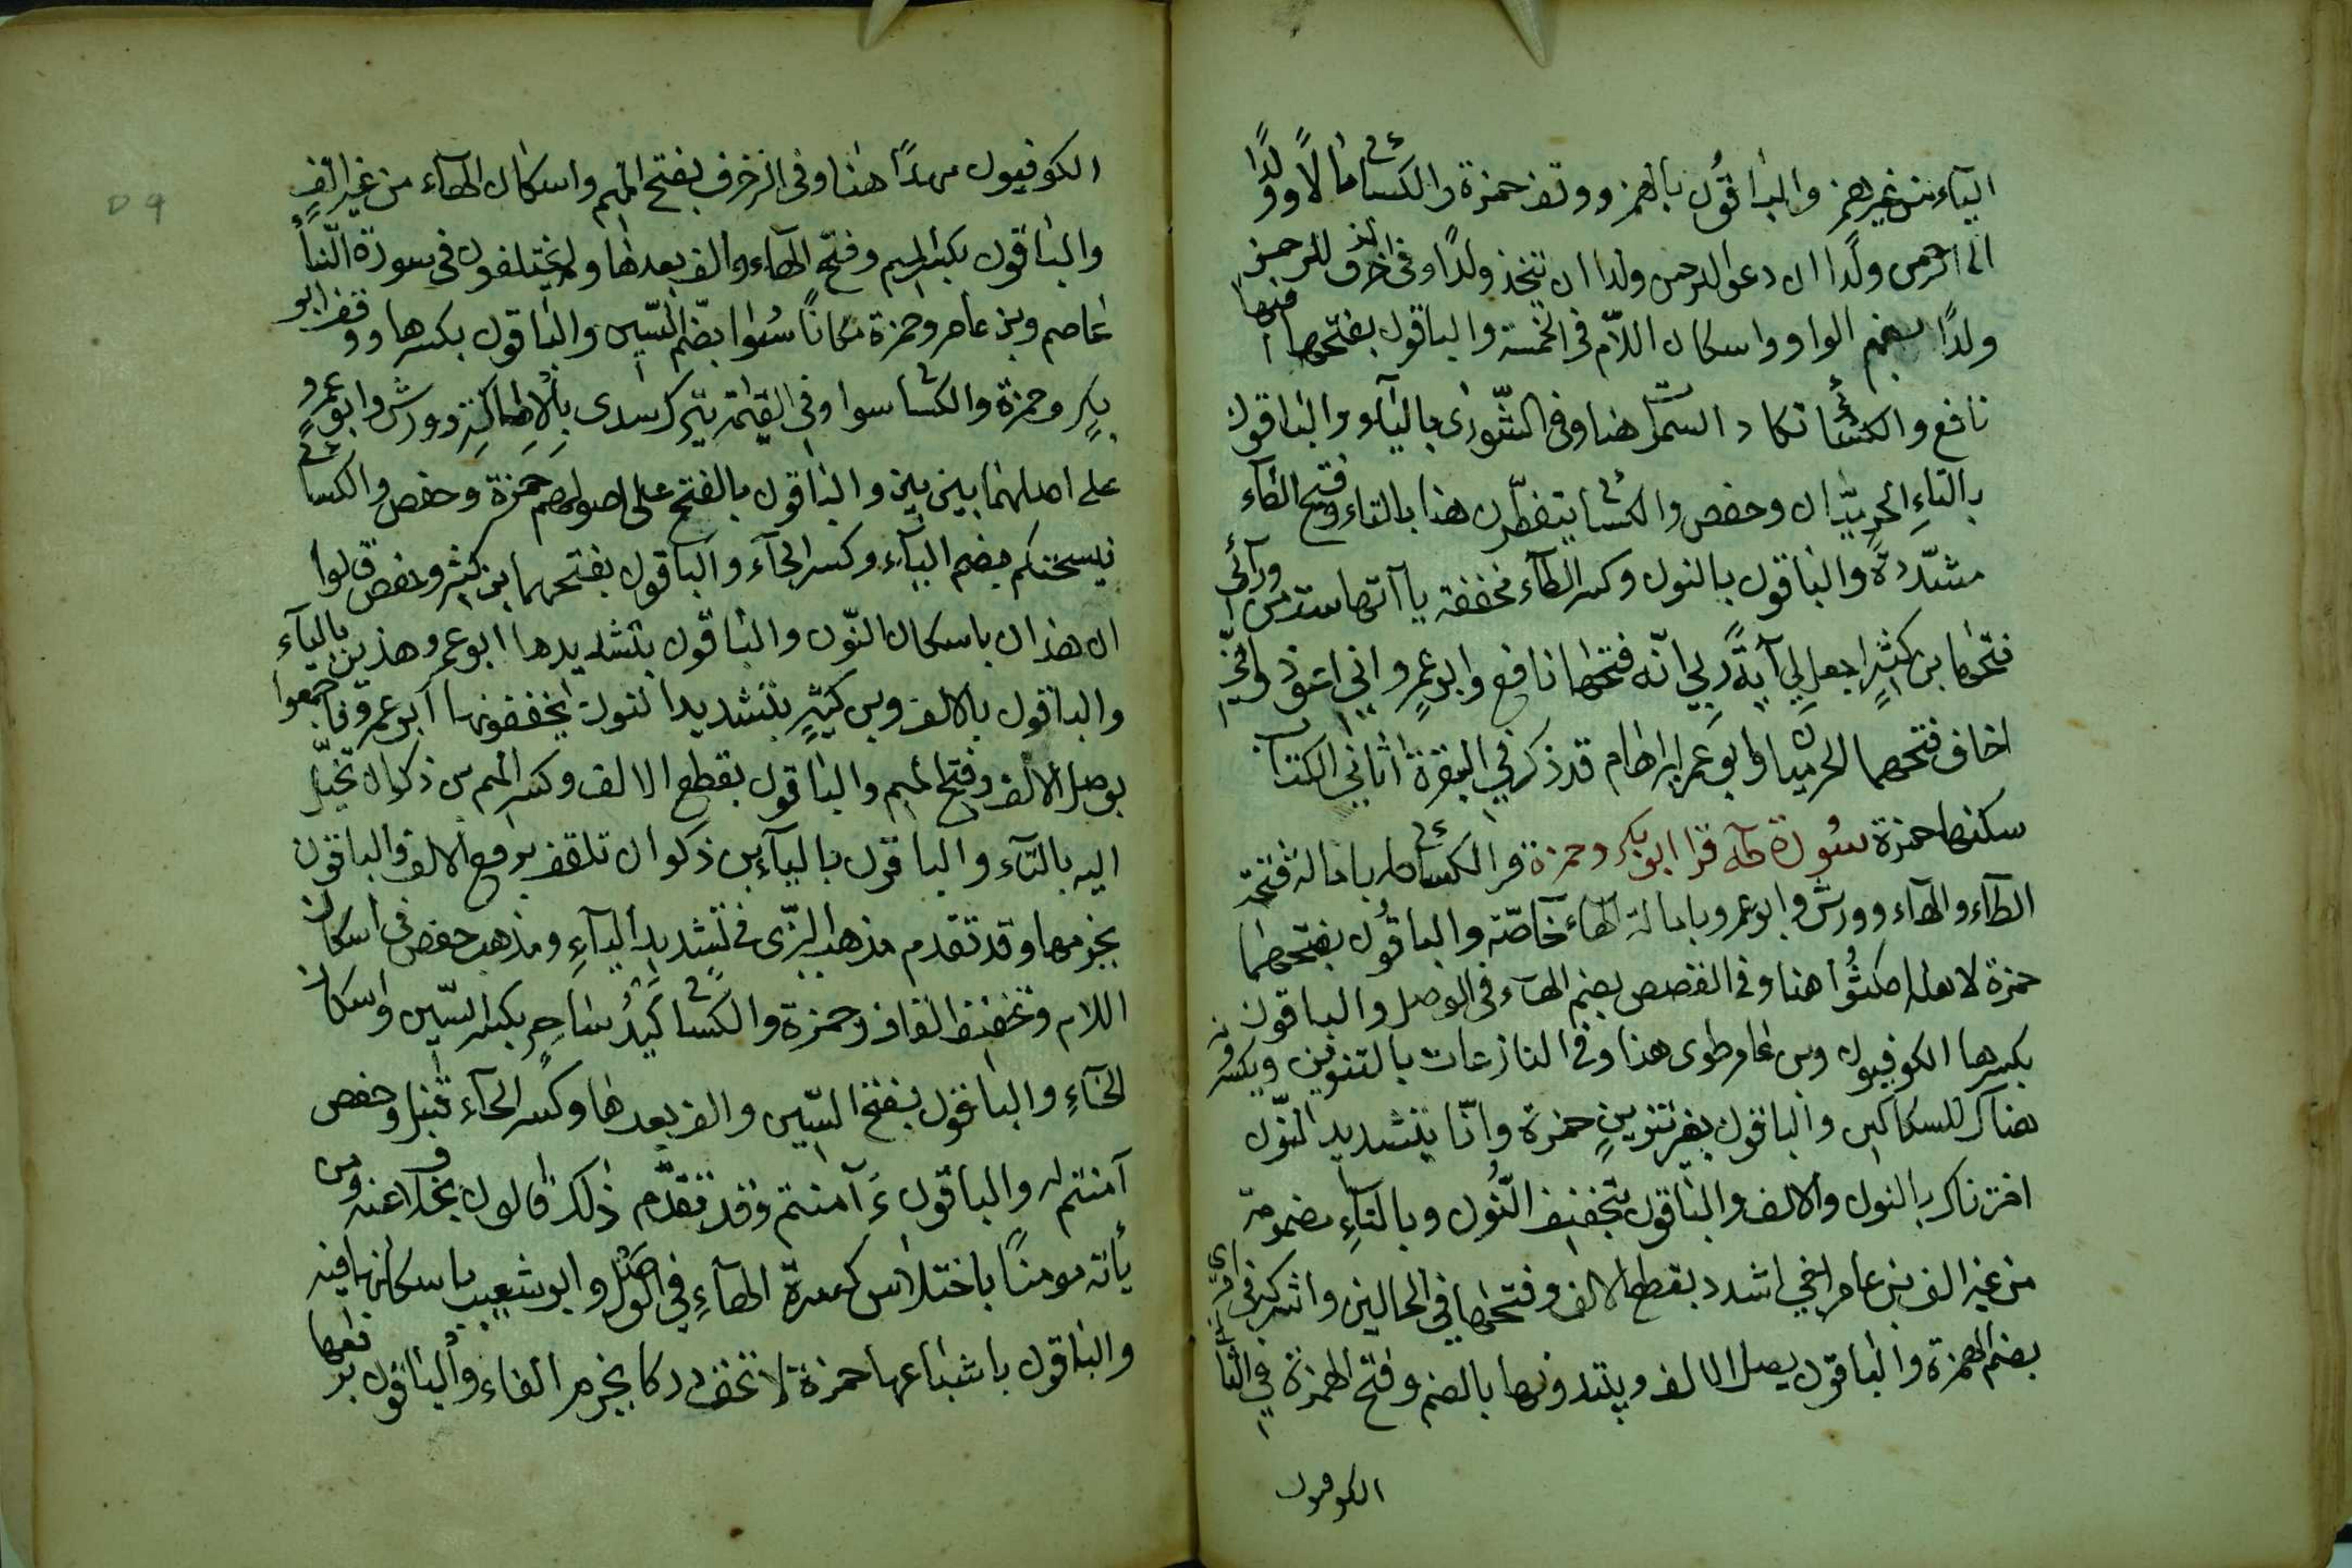 الياء من غير همز والباقون بالهمز ووقف حمزة والكسائي مالا وولدا
الرحمن ولدا ان دعوا للرحمن ولدا ان يتخذ ولدا وفي الزخرف للرحمن
ولدا بضم الواو واسكان اللام في الخمسة والباقون بفتحهما فيها
نافع والكسائي تكاد السموات هنا وفي الشورى بالياء والباقون
بالتاء الحرميان وحفص والكسائي يتفطرن هنا بالتاء وفتح الطاء
مشددة والباقون بالنون وكسر الطاء مخففة ياآتها ست من ورآئي
فتحها بن كثير اجعل لي آية ربي انه فتحها نافع وابو عمرو اني اعوذ واني
اخاف فتحهما الحرميان وابو عمر ابراهام قد ذكر في البقرة اتاني الكتاب
سكنها حمزة سورة طه قرا ابو بكر وحمزة والكسائي طه بامالة فتحة
الطاء والهاء وورش وابو عمرو بامالة الهاء خاصة والباقون بفتحهما
حمزة لاهله امكثوا هنا وفي القصص بضم الهاء في الوصل والباقون
بكسرها الكوفيون وبن عامر طوى هنا وفي النازعات بالتنوين ويكسرونه
هناك للساكنين والباقون بغير تنوين حمزة وانا بتشديد النون
اخترناك بالنون والالف والباقون بتخفيف النون وبالتاء مضمومة
من غير الف بن عامر اخي اشدد بقطع الالف وفتحها في الحالين واشركه في امري
بضم الهمزة والباقون بوصل الالف ويبتدونها بالضم وفتح الهمزة في الثاني
الكوفيون
الكوفيون مهدا هنا وفي الزخرف بفتح الميم واسكان الهاء من غير الف
والباقون بكسر الميم وفتح الهاء والف بعدها ولم يختلفوا في سورة النبأ
عاصم وبن عامر وحمزة مكانا سوا بضم السين والباقون بكسرها ووقف ابو
بكر وحمزة والكسائي سوا وفي القيمة يترك سدى بالامالة وورش وابو عمرو
على اصلهما بين بين والباقون بالفتح على اصولهم حمزة وحفص والكسائي
فيسحتكم بضم الياء وكسر الحاء والباقون بفتحهما بن كثير وحفص قالوا
ان هذان باسكان النون والباقون بتشديدها ابو عمرو هذين بالياء
والباقون بالالف وبن كثير بتشديد النون يخففونها ابو عمرو فاجمعوا
بوصل الالف وفتح الميم والباقون بقطع الالف وكسر الميم بن ذكوان تخيل
اليه بالتاء والباقون بالياء بن ذكوان تلقف برفع الالف والباقون
بجزمها وقد تقدم مذهب البزي في تشديد التاء ومذهب حفص في اسكان
اللام وتخفيف القاف وحمزة والكسائي كيد ساحر بكسر السين واسكان
الحاء والباقون بفتح السين والف بعدها وكسر الحاء قنبل وحفص
آمنتم له والباقون ءآمنتم وقد تقدم ذلك قالون بخلاف عنه ومن
يأته مومنا باختلاس كسرة الهاء في الوصل وابو شعيب باسكانها فيه
والباقون باشباعها حمزة لا تخف دركا بجزم الفاء والباقون برفعها